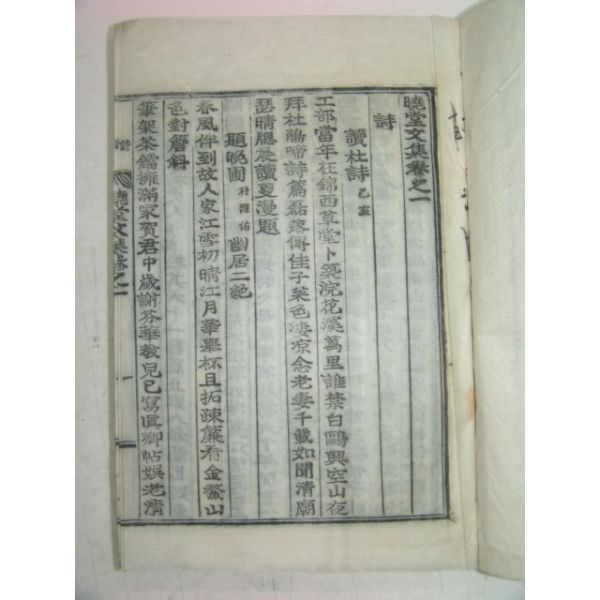 曉堂文集卷之一
詩
讀杜詩 乙亥
工部當年在錦西草堂卜築浣花溪萬里誰禁白鷗興空山夜
拜杜鵑啼詩篇磊落傳佳子菜色凄凉念老妻千載如聞清廟
瑟晴牕展讀夏漫題
題晩圃 幽居二絶
春風伴到故人家江雪初晴江月華擧杯且拓疎簾看金鰲山
色對簷斜
筆架茶鐺擁滿家賀君中歲謝芬華敎兒已寫眞卿帖娛老淸
曉堂文集卷之一